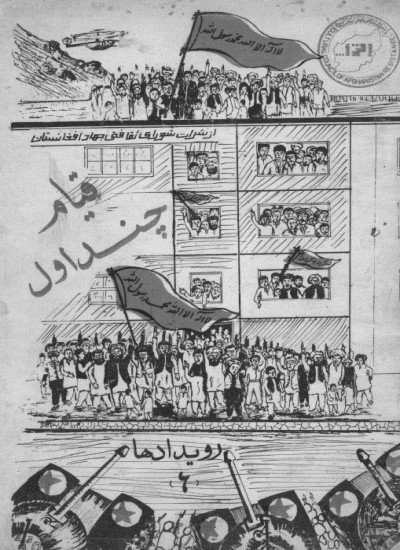 لا اله الا الله محمد رسول الله
از نشرات شورای ثقافتی جهاد افغانستان
قیام
چنداول
لا اله الا الله محمد رسول الله
رویدادها
(۶)